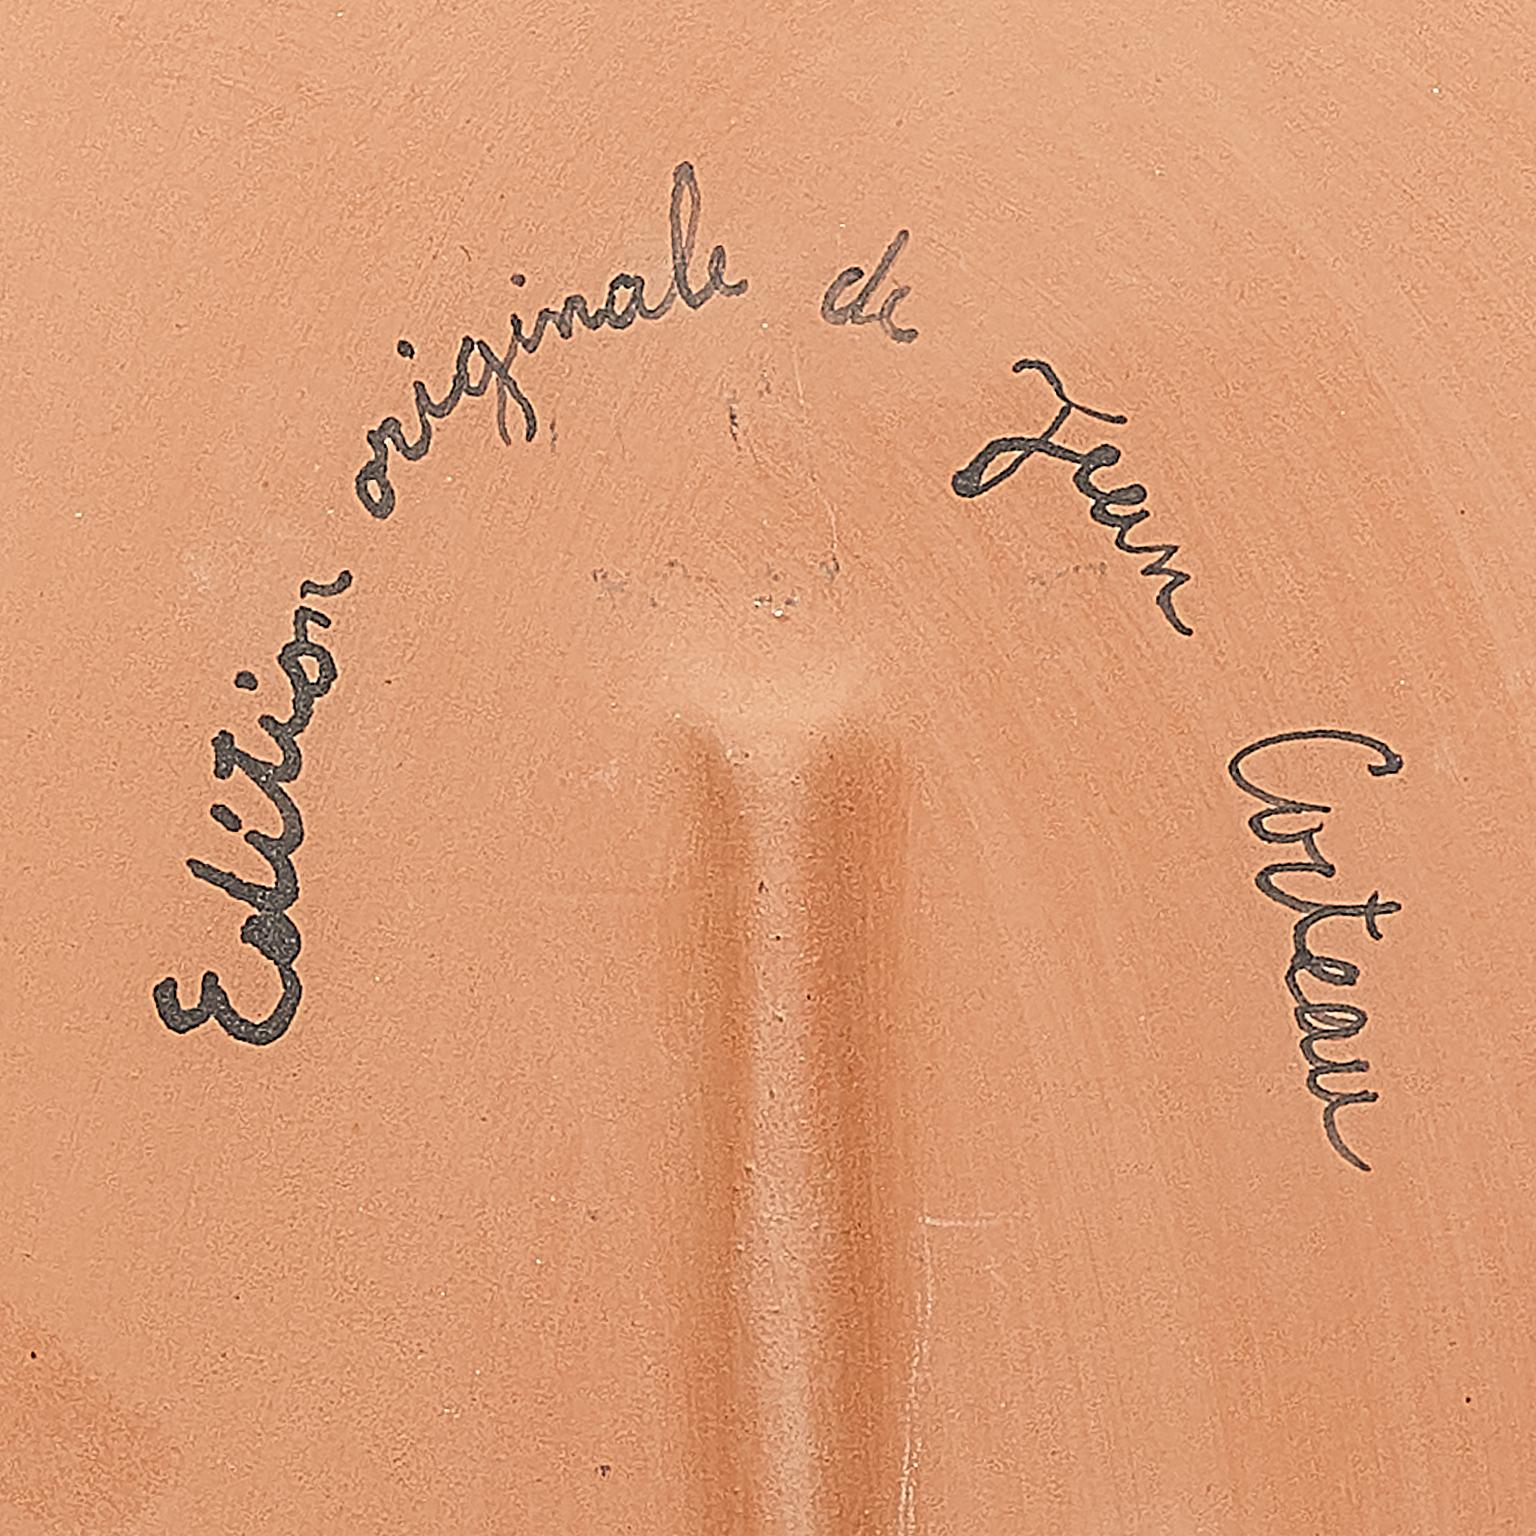 Edition originale de Jean Cocteau